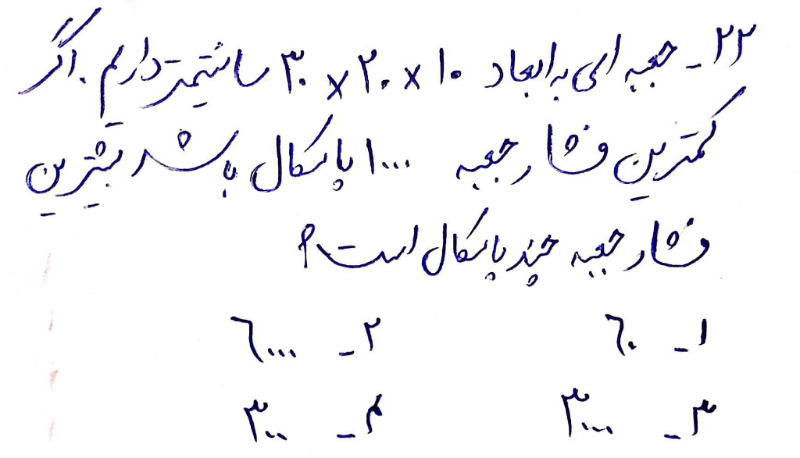 ۲۲ - جعبه ای به ابعاد ۱۰ × ۲۰ × ۳۰ سانتیمتر داریم. اگر
کمترین فشار جعبه ۱۰۰۰ پاسکال باشد بیشترین
فشار جعبه چند پاسکال است؟
۱ - ۶۰ ۲ - ۶۰۰۰
۳ - ۳۰۰۰ ۴ - ۳۰۰